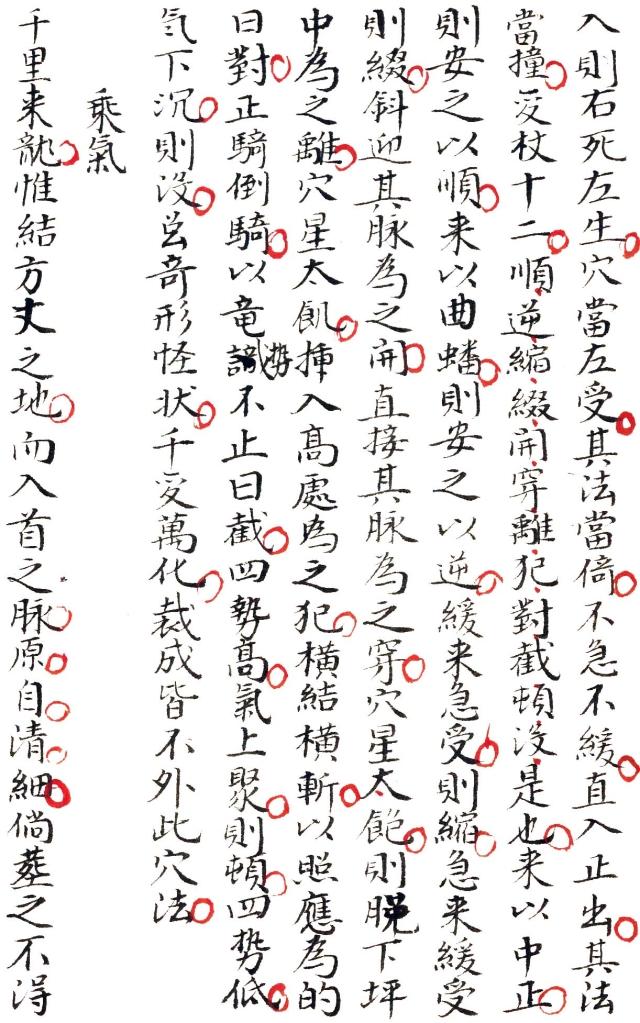 入則右死左生穴當左受其法當倚不急不緩直入正出其法
當撞受杖十二順逆縮綴開穿離犯對截頓没是也来以中正
則安之以順来以曲蟠則安之以逆緩来急受則縮急来緩受
則綴斜迎其脉為之開直接其脉為之穿穴星太飽則脱下坪
中為之離穴星太飢揷入高處為之犯橫結橫斬以照應為的
曰對正騎倒騎以竜勢不止曰截四勢高氣上聚則頓四势低
氣下沉則没兮奇形怪状千变萬化裁成皆不外此穴法
乘氣
千里来龍惟結方丈之地而入首之脉原自清細倘塟之不得